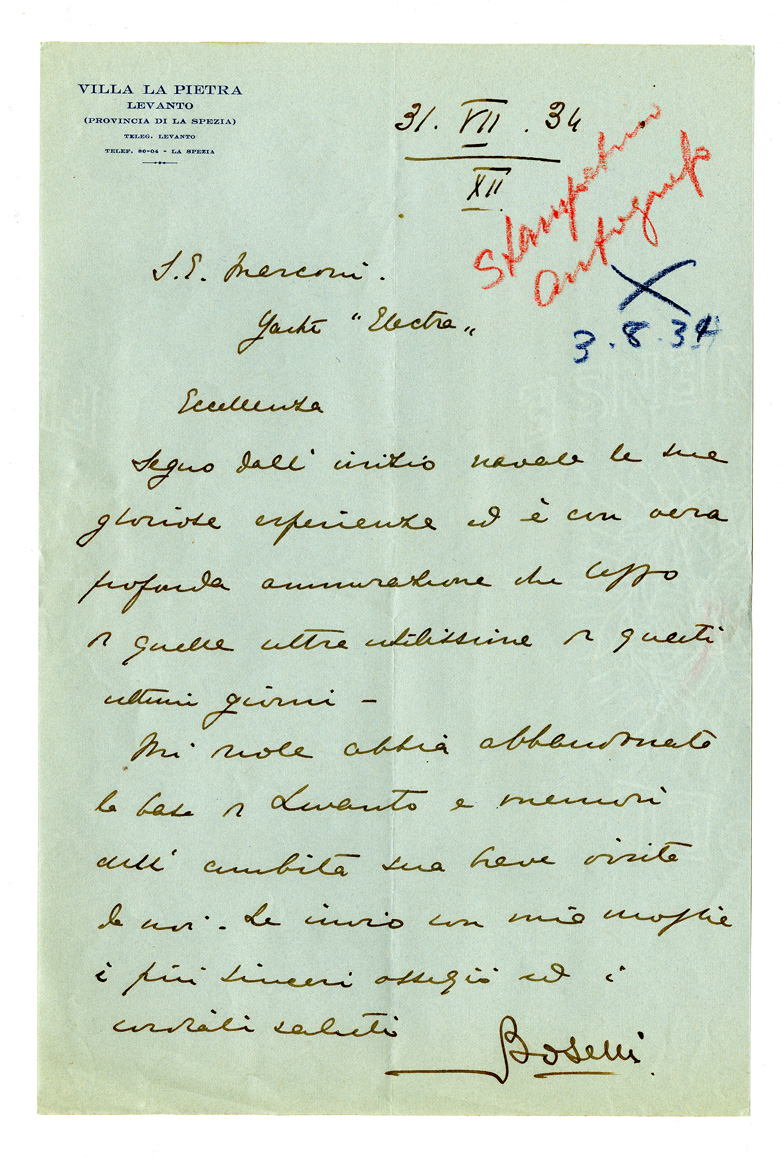 VILLA LA PIETRA
LEVANTO
(PROVINCIA DI LA SPEZIA)
TELEG. LEVANTO
TELEF. 80-04 - LA SPEZIA
31. VII. 34
XII
Stampatino
autografo
X
3.8.34
S.E. Marconi.
Yacht "Electra"
Eccellenza
Seguo dall' inizio navale le sue
gloriose esperienze ed è con vera
profonda ammirazione che leggo
di quelle ultre utilissime di questi
ultimi giorni -
Mi vuole abbia abbandonato
la base di Levanto e memori
dell' ambita sua breve visita
da noi. Le invio con mia moglie
i più sinceri ossequi ed i
cordiali saluti
Boselli